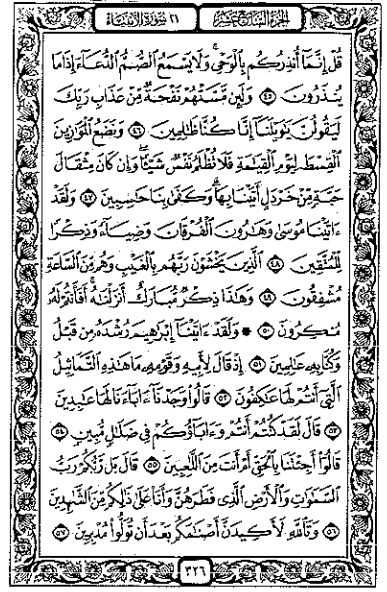 الجزء السابع عشر
٢١ سورة الأنبياء
قُلْ إِنَّمَآ أُنذِرُكُم بِالْوَحْيِ ۚ وَلَا يَسْمَعُ الصُّمُّ الدُّعَآءَ إِذَا مَا
يُنذَرُونَ ٤٥ وَلَئِن مَّسَّتْهُمْ نَفْحَةٌ مِّنْ عَذَابِ رَبِّكَ
لَيَقُولُنَّ يَٰوَيْلَنَآ إِنَّا كُنَّا ظَٰلِمِينَ ٤٦ وَنَضَعُ الْمَوَٰزِينَ
الْقِسْطَ لِيَوْمِ الْقِيَٰمَةِ فَلَا تُظْلَمُ نَفْسٌ شَيْـًٔا ۖ وَإِن كَانَ مِثْقَالَ
حَبَّةٍ مِّنْ خَرْدَلٍ أَتَيْنَا بِهَا ۗ وَكَفَىٰ بِنَا حَٰسِبِينَ ٤٧ وَلَقَدْ
ءَاتَيْنَا مُوسَىٰ وَهَٰرُونَ الْفُرْقَانَ وَضِيَآءً وَذِكْرًا
لِّلْمُتَّقِينَ ٤٨ الَّذِينَ يَخْشَوْنَ رَبَّهُم بِالْغَيْبِ وَهُم مِّنَ السَّاعَةِ
مُشْفِقُونَ ٤٩ وَهَٰذَا ذِكْرٌ مُّبَارَكٌ أَنزَلْنَٰهُ ۚ أَفَأَنتُمْ لَهُۥ
مُنكِرُونَ ٥٠ ۞ وَلَقَدْ ءَاتَيْنَآ إِبْرَٰهِيمَ رُشْدَهُۥ مِن قَبْلُ
وَكُنَّا بِهِۦ عَٰلِمِينَ ٥١ إِذْ قَالَ لِأَبِيهِ وَقَوْمِهِۦ مَا هَٰذِهِ التَّمَاثِيلُ
الَّتِىٓ أَنتُمْ لَهَا عَٰكِفُونَ ٥٢ قَالُوا۟ وَجَدْنَآ ءَابَآءَنَا لَهَا عَٰبِدِينَ
٥٣ قَالَ لَقَدْ كُنتُمْ أَنتُمْ وَءَابَآؤُكُمْ فِى ضَلَٰلٍ مُّبِينٍ ٥٤
قَالُوٓا۟ أَجِئْتَنَا بِالْحَقِّ أَمْ أَنتَ مِنَ اللَّٰعِبِينَ ٥٥ قَالَ بَل رَّبُّكُمْ رَبُّ
السَّمَٰوَٰتِ وَالْأَرْضِ الَّذِى فَطَرَهُنَّ وَأَنَا۠ عَلَىٰ ذَٰلِكُم مِّنَ الشَّٰهِدِينَ
٥٦ وَتَاللَّهِ لَأَكِيدَنَّ أَصْنَٰمَكُم بَعْدَ أَن تُوَلُّوا۟ مُدْبِرِينَ ٥٧
٣٢٦